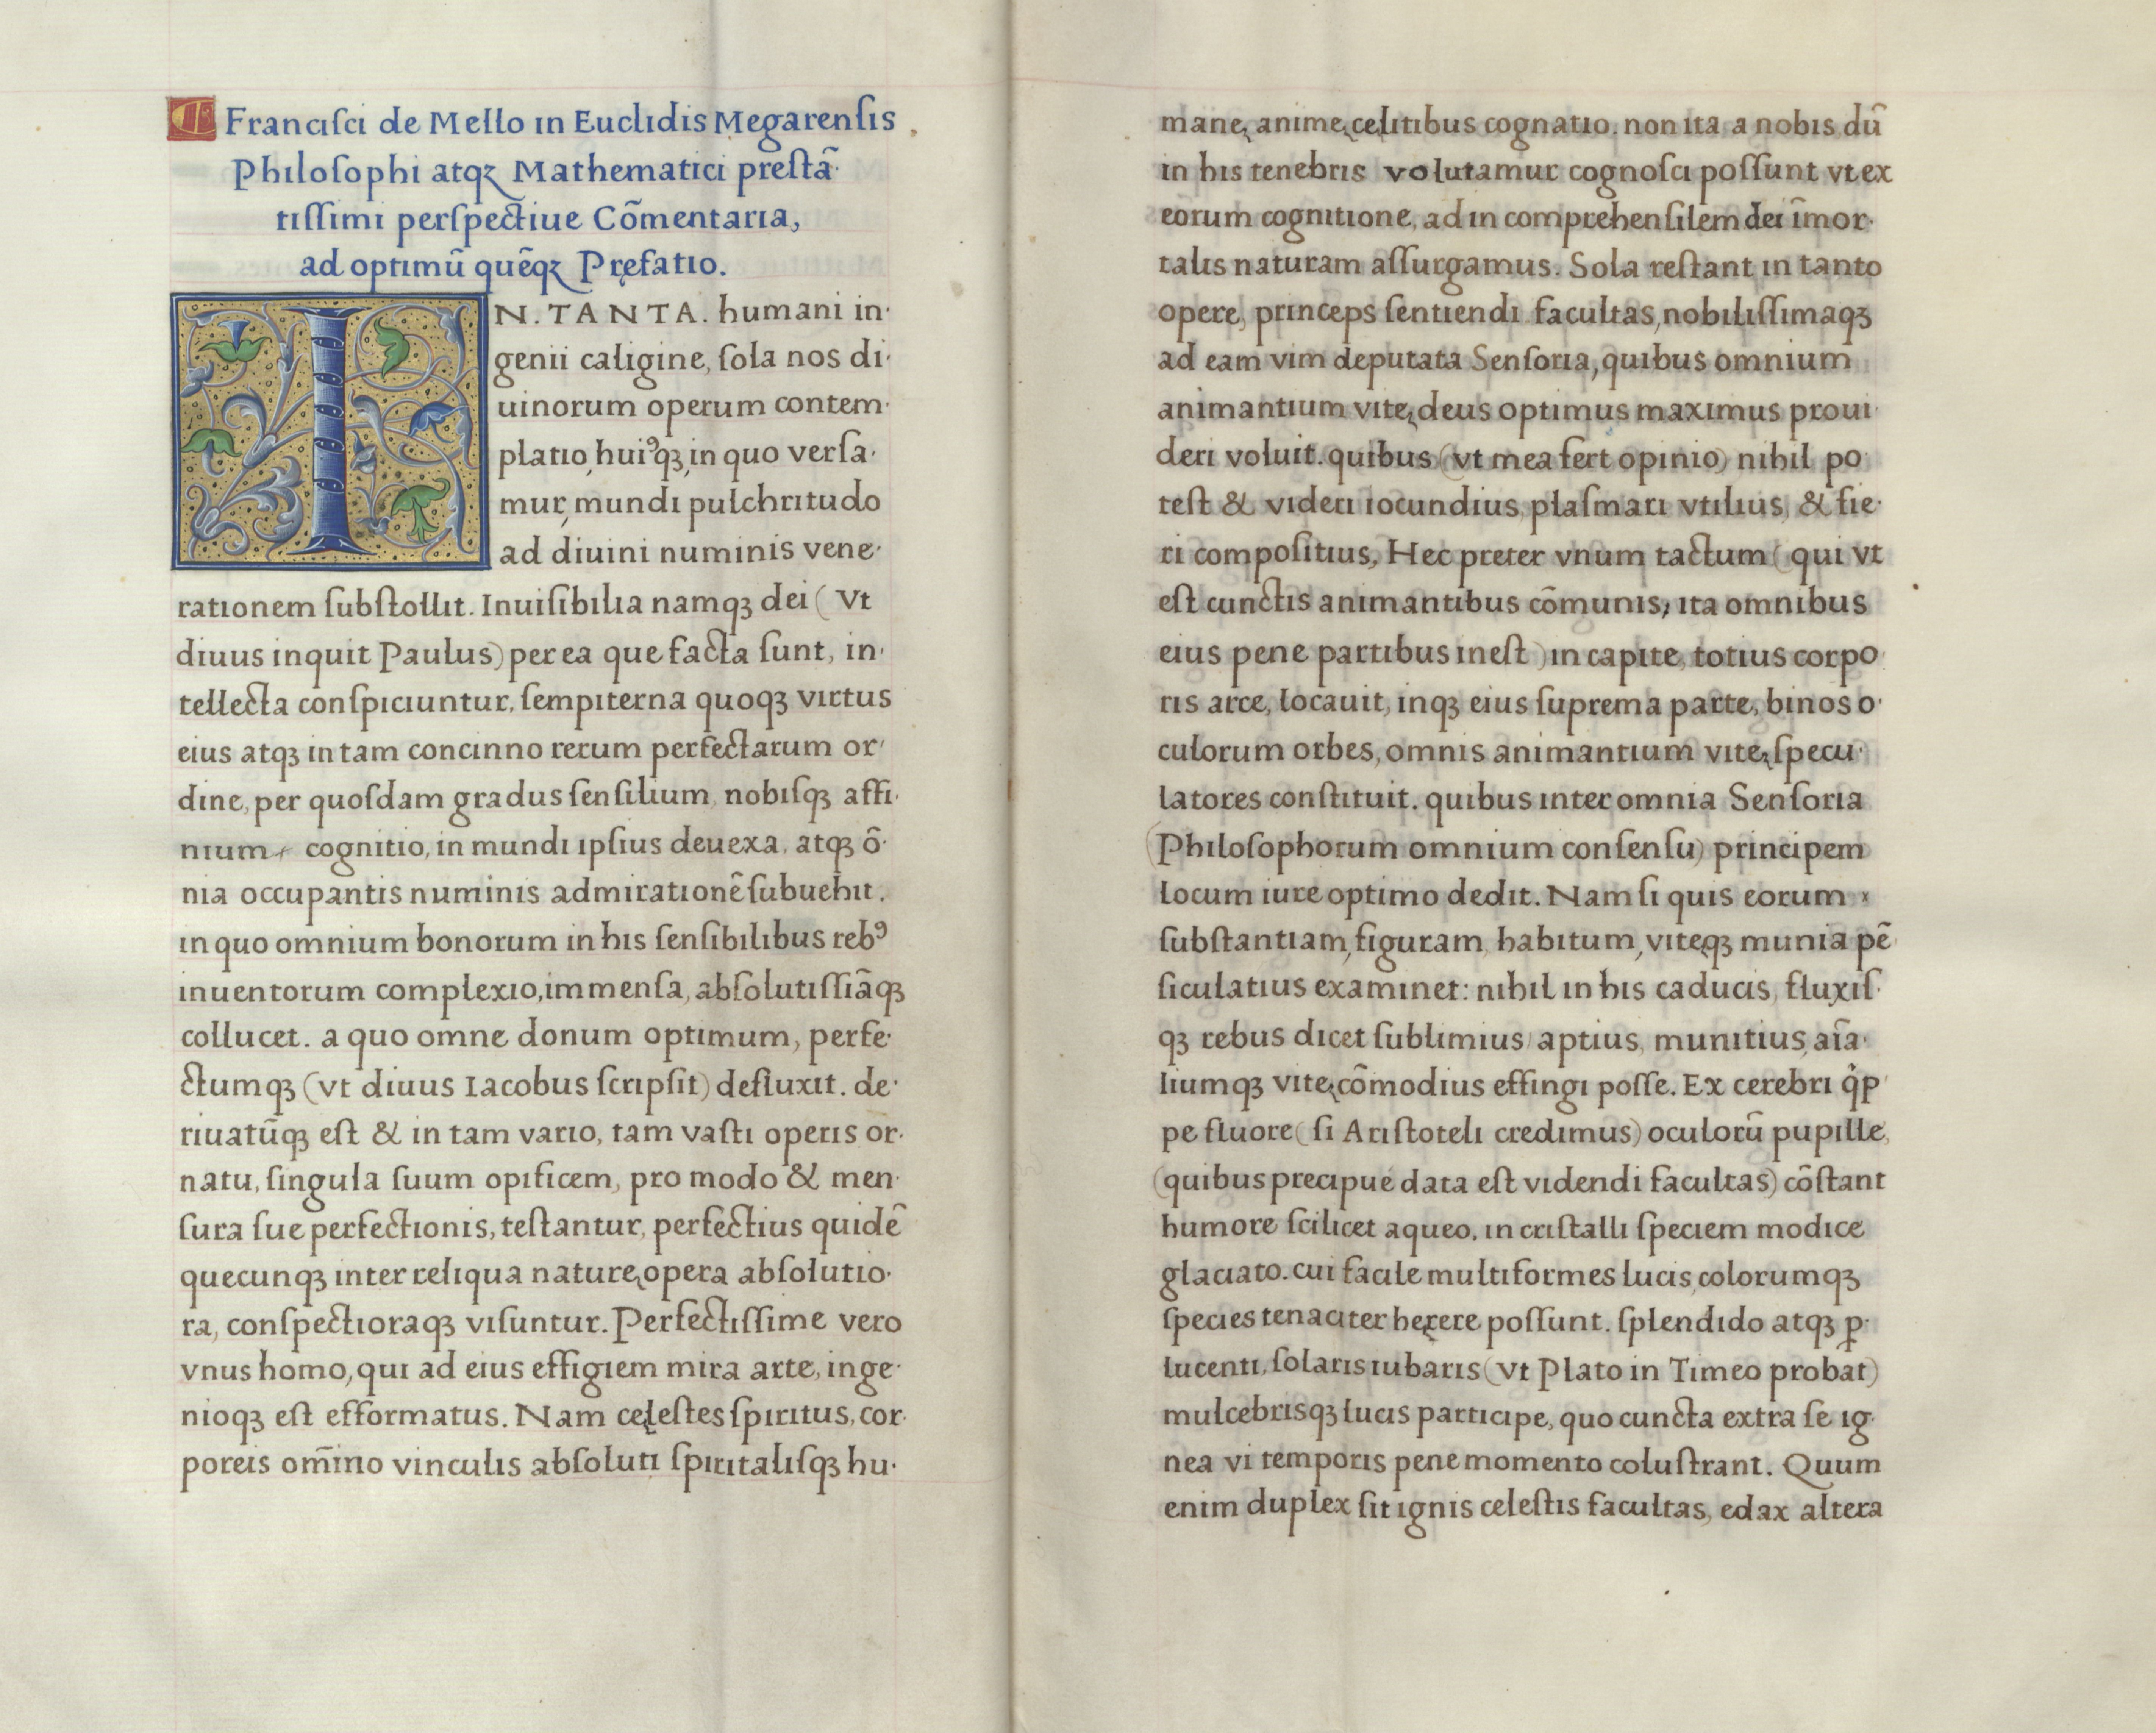 Franciſci de Mello in Euclidis Megarenſis
Philoſophi atqꝫ Mathematici preſtā·
tiſſimi perſpectiue Cōmentaria,
ad optimū quēqꝫ Pręfatio.
IN. TANTA. humani in·
genii caligine, ſola nos di·
uinorum operum contem·
platio, huiꝰqꝫ, in quo verſa·
mur, mundi pulchritudo
ad diuini numinis vene·
rationem ſubſtollit. Inuiſibilia namqꝫ dei (Vt
diuus inquit Paulus) per ea que facta ſunt, in·
tellecta conſpiciuntur, ſempiterna quoqꝫ virtus
eius atqꝫ in tam concinno rerum perfectarum or·
dine, per quoſdam gradus ſenſilium, nobiſqꝫ affi·
nium cognitio, in mundi ipſius deuexa, atqꝫ ō·
nia occupantis numinis admirationē ſubuehit.
in quo omnium bonorum in his ſenſibilibus rebꝰ
inuentorum complexio, immenſa, abſolutiſſiāqꝫ
collucet. a quo omne donum optimum, perfe·
ctumqꝫ (vt diuus Iacobus ſcripſit) defluxit. de·
riuatūqꝫ eſt & in tam vario, tam vaſti operis or·
natu, ſingula ſuum opificem, pro modo & men·
ſura ſue perfectionis, teſtantur, perfectius quidē
quecunqꝫ inter reliqua naturę opera abſolutio·
ra, conſpectioraqꝫ viſuntur. Perfectiſſime vero
vnus homo, qui ad eius effigiem mira arte, inge·
nioqꝫ eſt efformatus. Nam cęleſtes ſpiritus, cor·
poreis om̄ino vinculis abſoluti ſpiritaliſqꝫ hu·
manę, animę, cęlitibus cognatio. non ita a nobis dū
in his tenebris volutamur cognoſci poſſunt vt ex
eorum cognitione, ad in comprehenſilem dei īmor·
talis naturam aſſurgamus. Sola reſtant in tanto
opere, princeps ſentiendi facultas, nobiliſſimaqꝫ
ad eam vim deputata Senſoria, quibus omnium
animantium vitę, deus optimus maximus proui·
deri voluit. quibus (vt mea fert opinio) nihil po
teſt & videri iocundius, plaſmari vtilius, & fie·
ri compoſitius, Hec preter vnum tactum (qui vt
eſt cunctis animantibus cōmunis, ita omnibus
eius pene partibus ineſt) in capite, totius corpo·
ris arce, locauit, inqꝫ eius ſuprema parte, binos o·
culorum orbes, omnis animantium vitę, ſpecu·
latores conſtituit. quibus inter omnia Senſoria
(Philoſophorum omnium conſenſu) principem
locum iure optimo dedit. Nam ſi quis eorum
ſubſtantiam, figuram, habitum, vitęqꝫ munia pē
ſiculatius examinet: nihil in his caducis, fluxiſ·
qꝫ rebus dicet ſublimius, aptius, munitius, aīa·
liumqꝫ vitę, cōmodius effingi poſſe. Ex cerebri qͥp·
pe fluore (ſi Ariſtoteli credimus) oculorū pupille,
(quibus precipue data eſt videndi facultas) cōſtant
humore ſcilicet aqueo. in criſtalli ſpeciem modice
glaciato. cui facile multiformes lucis, colorumqꝫ
ſpecies tenaciter hęrere poſſunt. ſplendido atqꝫ ꝑ·
lucenti, ſolaris iubaris (vt Plato in Timeo probat)
mulcebrisqꝫ lucis participe, quo cuncta extra ſe ig·
nea vi temporis pene momento coluſtrant. Quum
enim duplex ſit ignis celeſtis facultas, edax altera